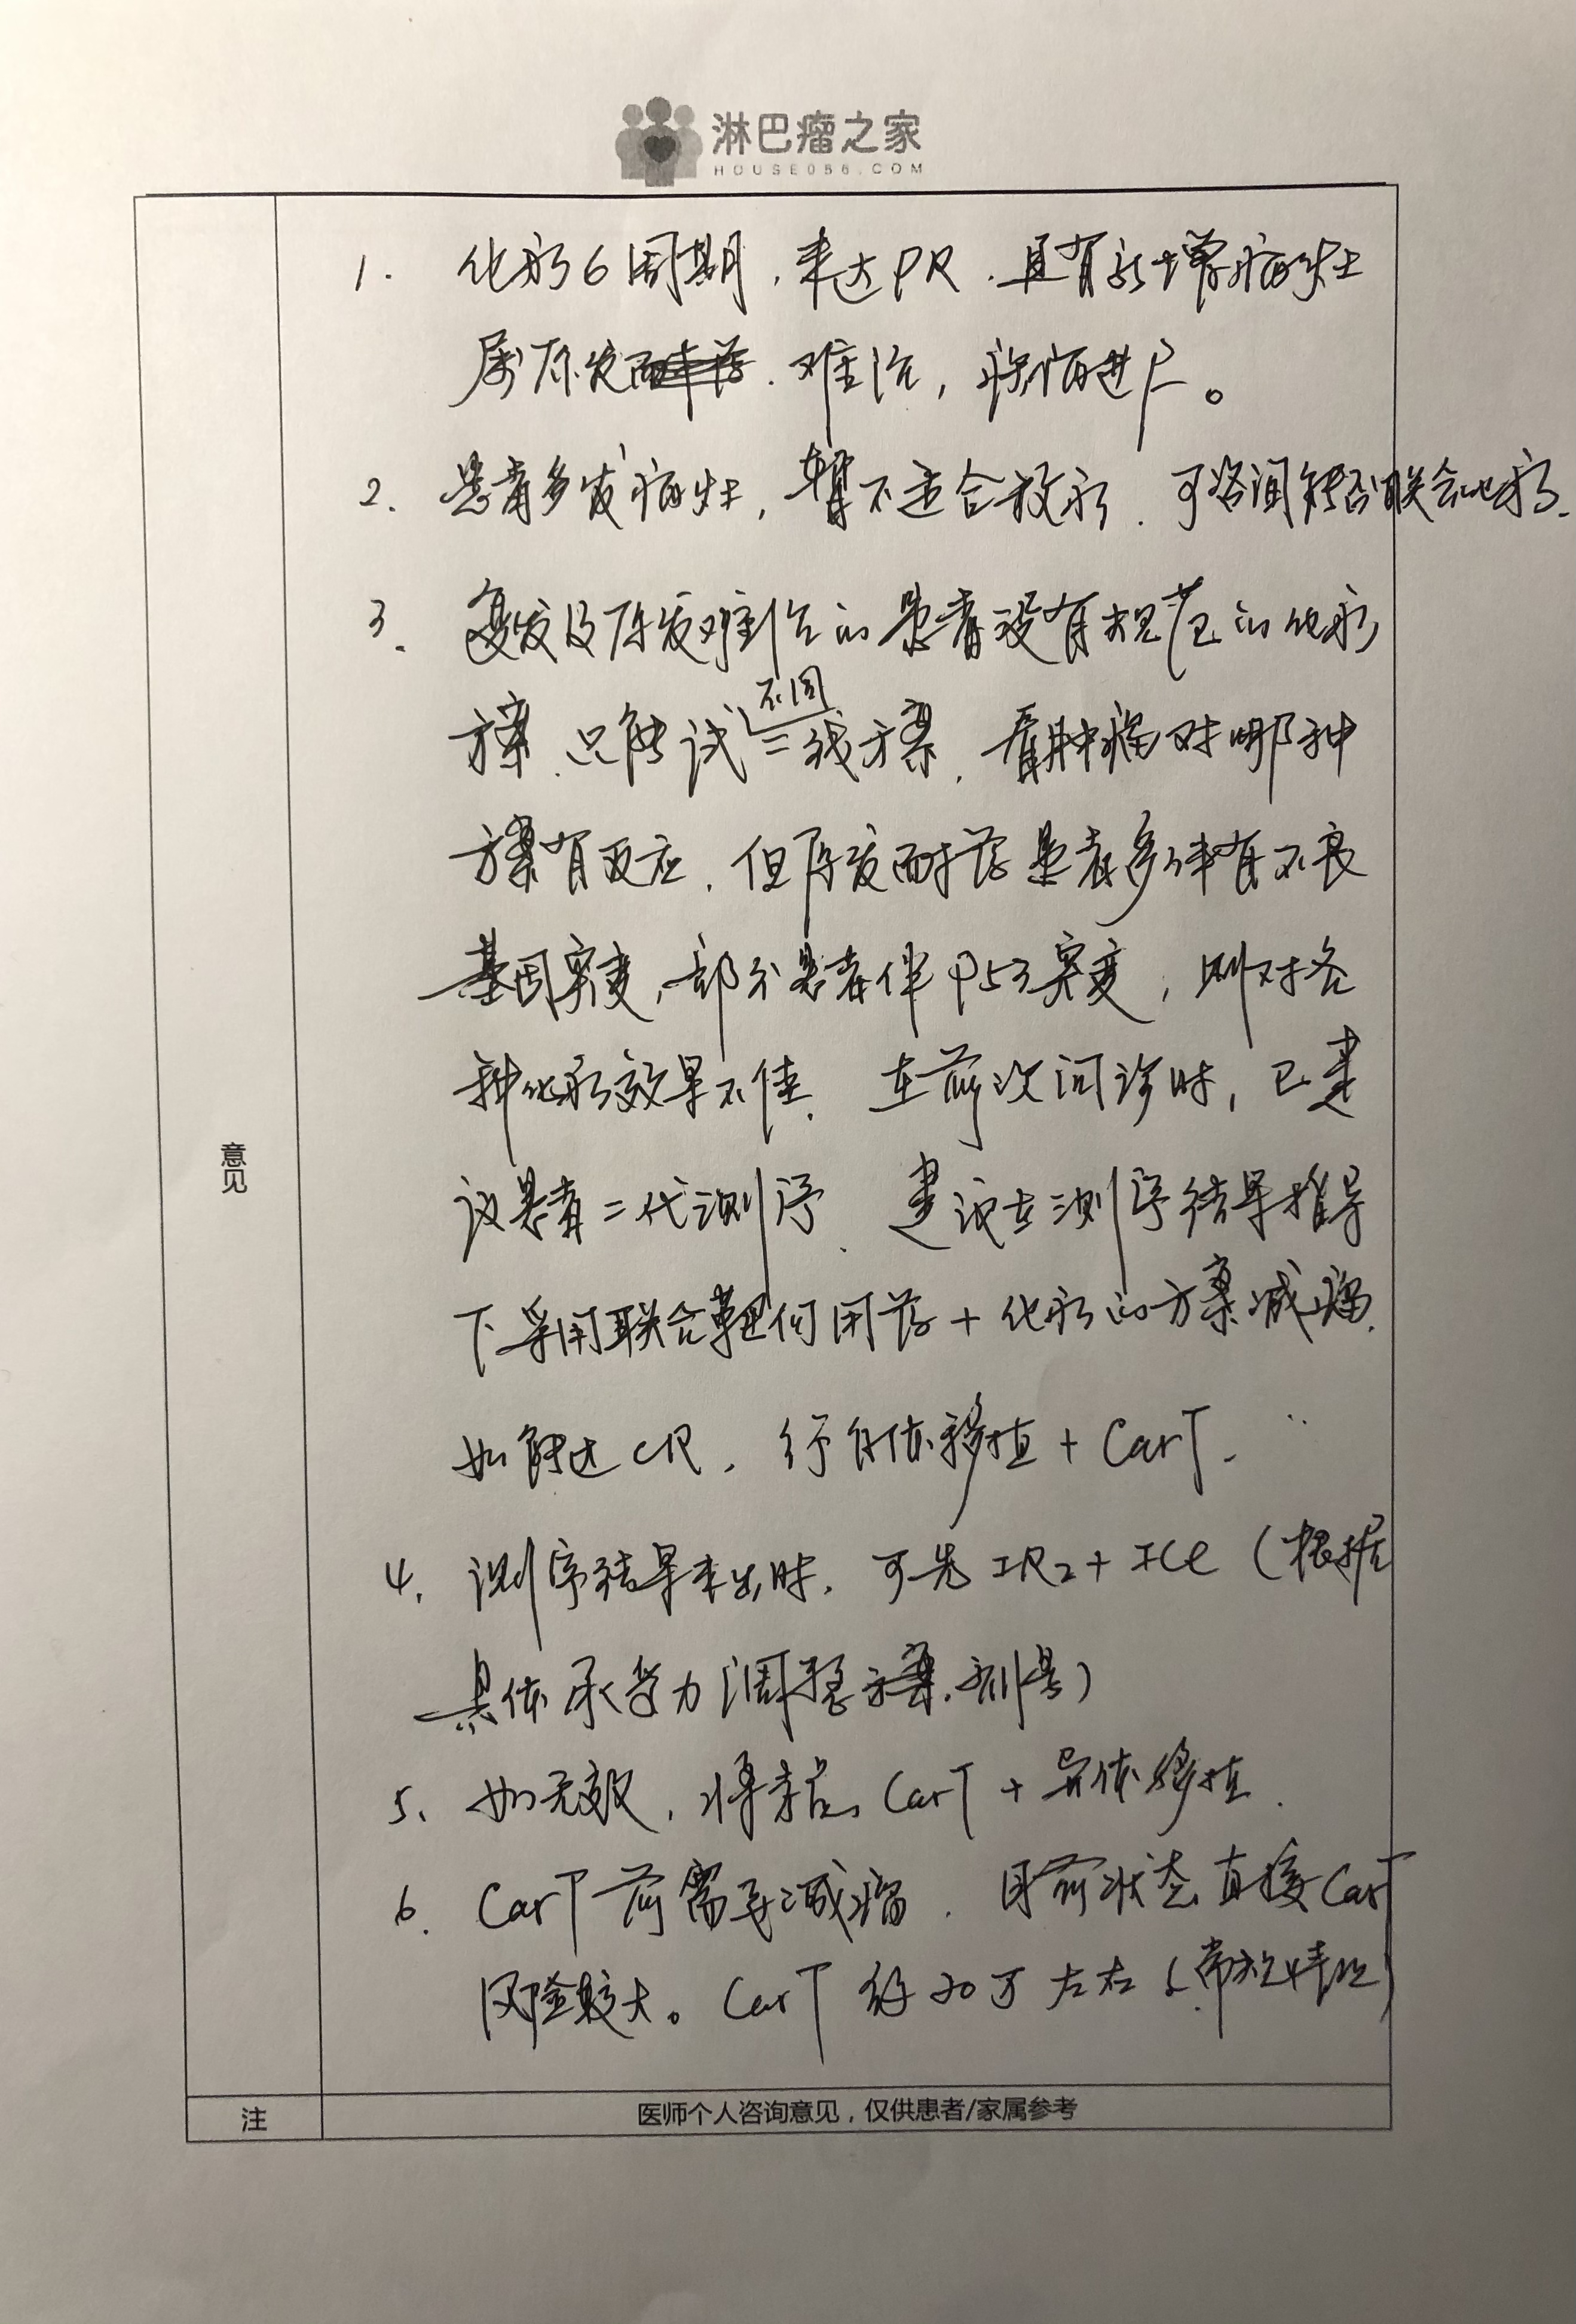 淋巴瘤之家
HOUSE086.COM
1. 化疗6周期,未达PR,且有新增病灶
属原发难治,疾病进展。
2. 患者多发病灶,暂不适合放疗,可咨询能否联合化疗.
3. 复发及原发难治的患者没有规范的化疗
不同
方案,只能试二线方案,看肿瘤对哪种
方案有反应,但原发耐药患者多伴有不良
基因突变,部分患者伴P53突变,则对各
种化疗效果不佳. 在前次问诊时,已建
议患者二代测序、建议在测序结果指导
下采用联合靶向用药+化疗的方案减瘤.
如能达CR,行自体移植+CarT.
4. 测序结果未出时,可先IR2+ICE(根据
具体承受力调整方案,剂量)
5、如无效,将来 CarT+异体移植.
6. CarT前需要减瘤,目前状态直接CarT
风险较大。CarT 约30万左右(常规情况)
意见
注
医师个人咨询意见,仅供患者/家属参考